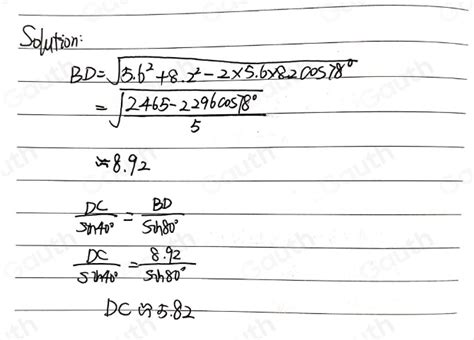 Solution:
BD=√5.6²+8.2²-2×5.6×8.2cos78°
=√2465-2296cos78°
5
≈8.92
DC/sin40° = BD/sin80°
DC/sin40° = 8.92/sin80°
DC≈5.82